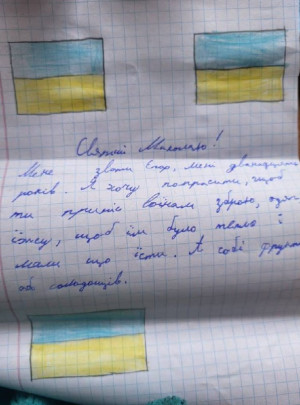 Святий Миколаю!
Мене звати Єгор, мені дванадцять
років. Я хочу попросити, щоб
ти приніс воїнам зброю, одяг
їжу, щоб їм було тепло і
мали що їсти. А собі
солодощів.